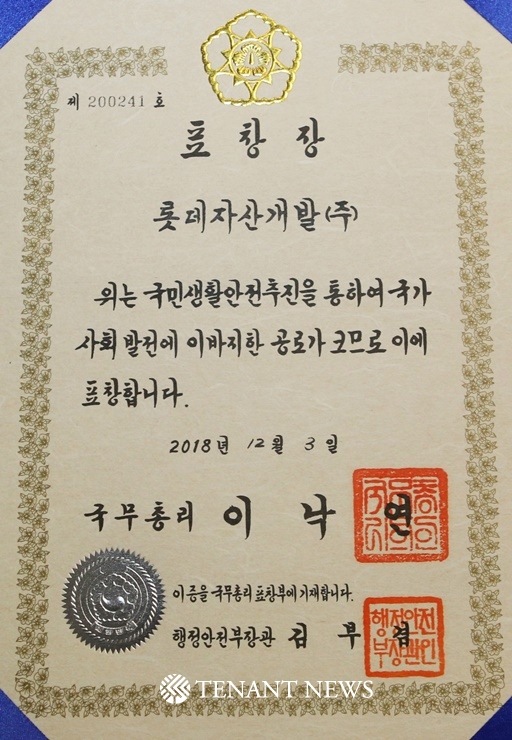 제 200241 호
표 창 장
롯데자산개발(주)
위는 국민생활안전추진을 통하여 국가
사회 발전에 이바지한 공로가 크므로 이에
표창합니다.
2018년 12월 3일
국무총리 이 낙 연
이 증을 국무총리 표창부에 기재합니다.
행정안전부장관 김 부 겸
행정안전
부장관인
TENANT NEWS